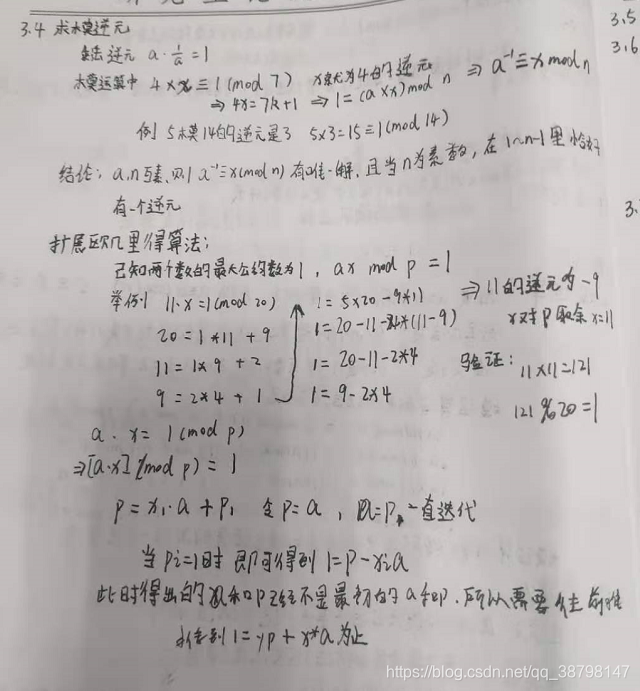 3.4 求模逆元
3.5
3.6
乘法逆元 a·1/a = 1
模运算中 4 × x ≡ 1 (mod 7) x就为4的逆元
⇒ 4x = 7k+1 ⇒ 1 = (a × x) mod n ⇒ a⁻¹ ≡ x mod n
例 5模14的逆元是3 5×3=15≡1(mod 14)
结论: a,n互素,则 a⁻¹≡x(mod n) 有唯一解,且当n为素数,在1~n-1里恰好
有一个逆元
3.
扩展欧几里得算法:
已知两个数的最大公约数为1, ax mod p = 1
举例 11·x=1(mod 20) 1=5×20-9*11 ⇒11的逆元为-9
20=1*11+9 1=20-11-*(11-9) x对p取余 x=11
11=1×9+2 1=20-11-2*4 验证: 11×11=121
9=2*4+1 1=9-2×4 121%20=1
a·x=1(mod p)
⇒[a·x](mod p)=1
p=x₁·a+p₁ 令p=a, a=p₁ 一直迭代
当pi=1时 即可得到1=p-xia
此时得出的和p已经不是最初的a和p.所以需要往前推
1=yp+x*a为止
https://blog.csdn.net/qq_38798147